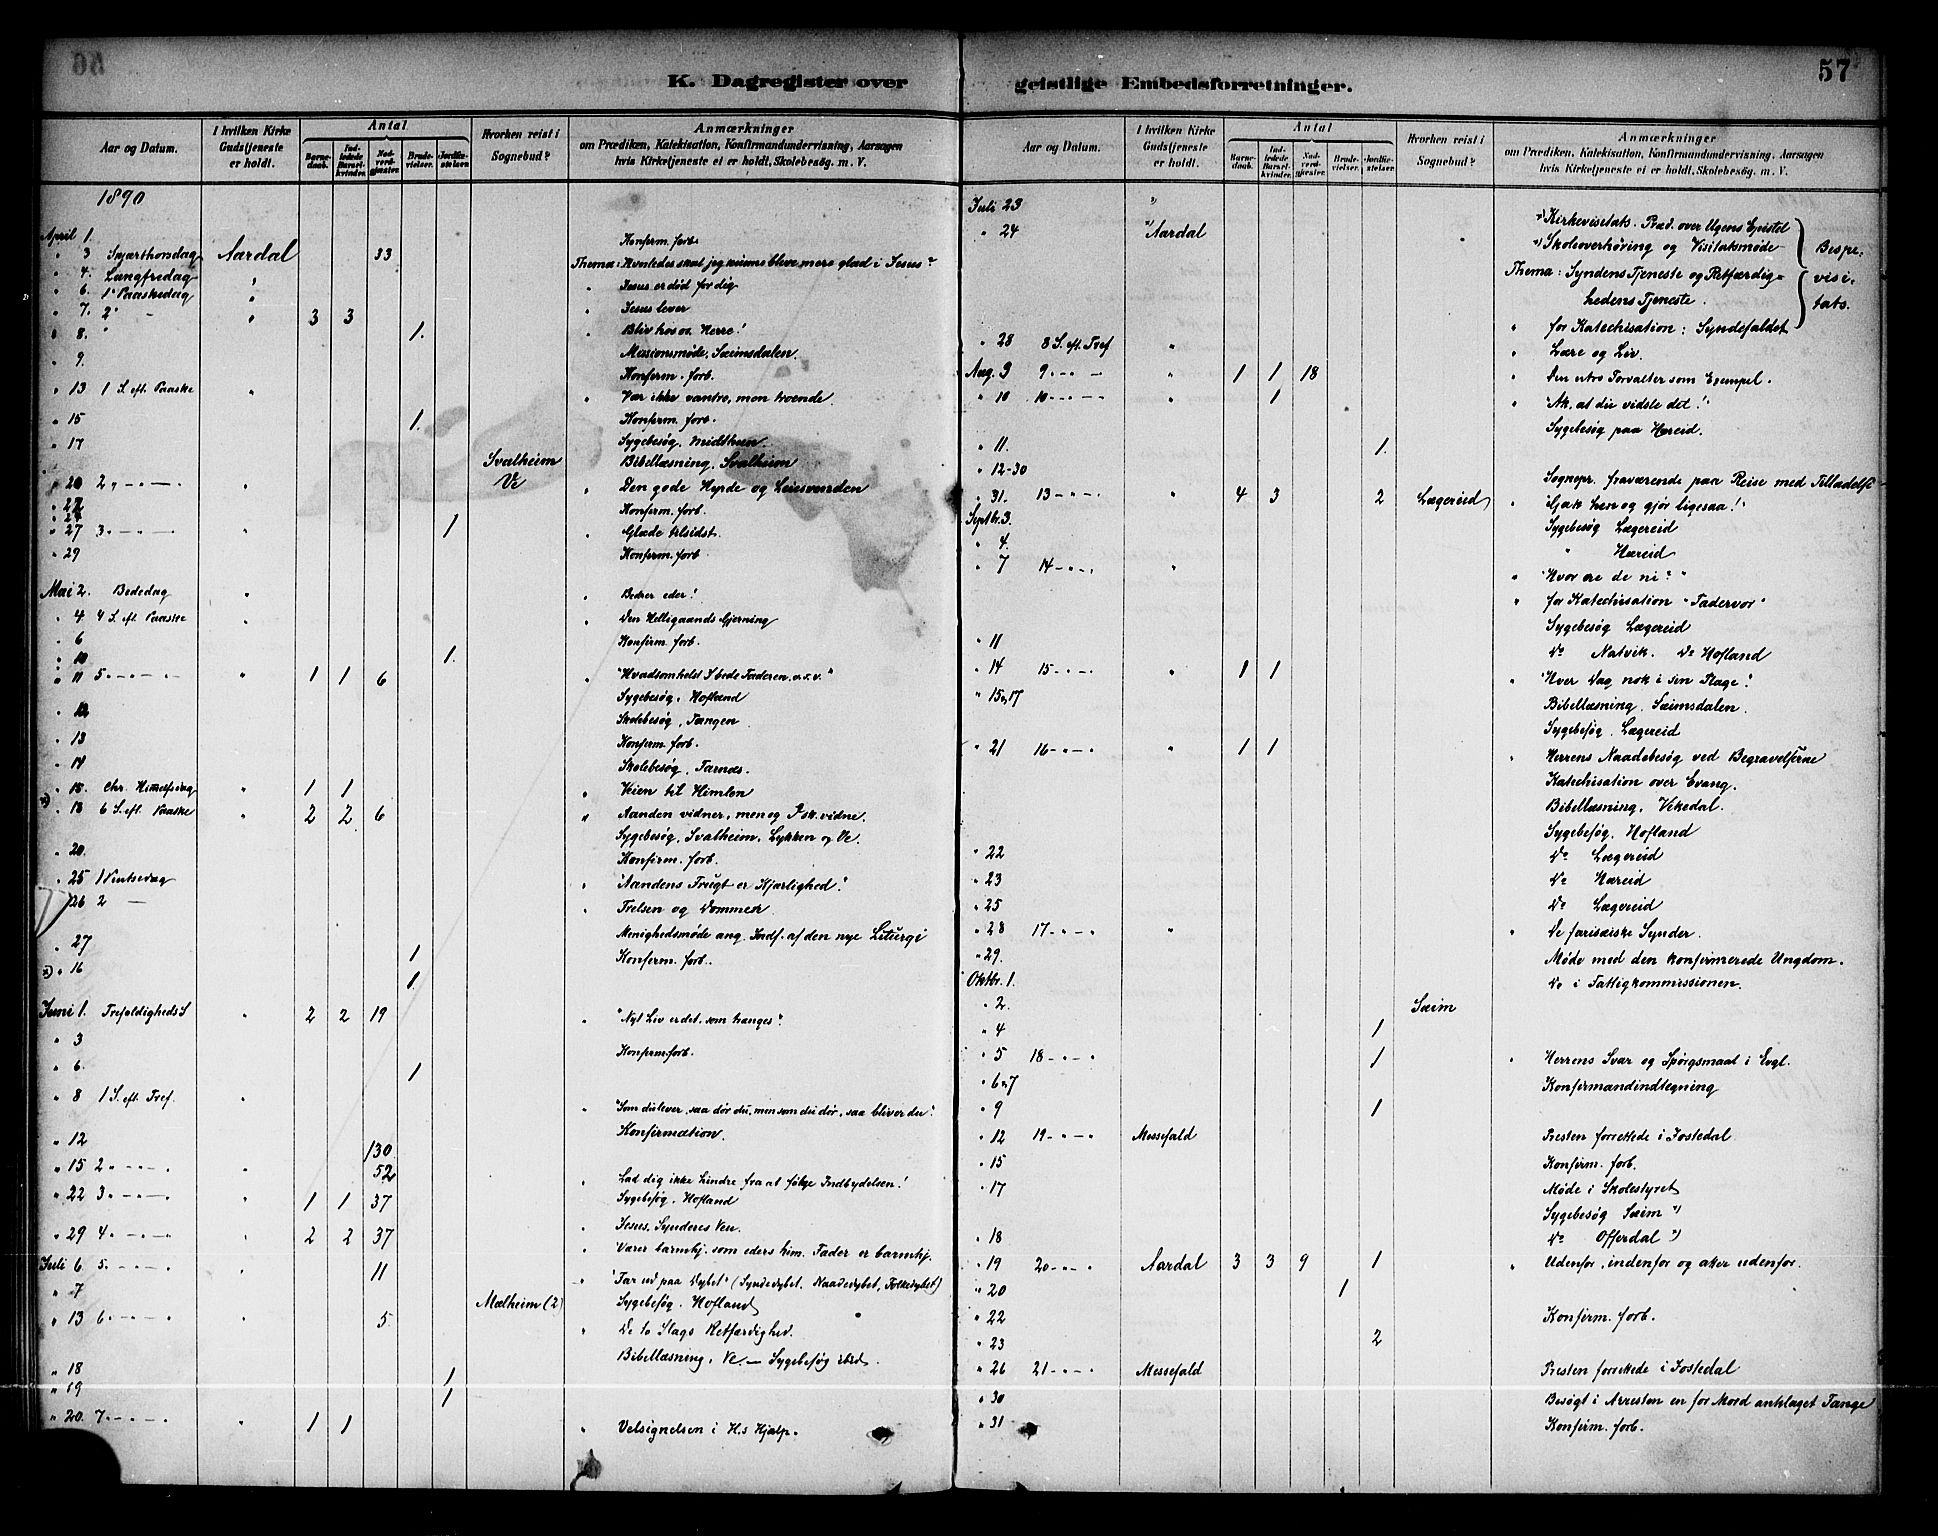 56
K. Dagregister over
Aar og Datum.
I hvilken Kirke Gudstjeneste er holdt.
Antal
Barne-daab.
Ind-ledede Barsel-kvinder.
Nad-verd-gjæster.
Brude-vielser.
Jordfæ-stelser.
Hvorhen reist i Sognebud?
Anmærkninger
om Prædiken, Katekisation, Konfirmandundervisning, Aarsagen
hvis Kirketjeneste ei er holdt, Skolebesøg. m. V.
1890
April 1. Konferm. forb.
" 3 Skjærthorsdag Aardal 33 Thema: Hvorledes skal jeg kunne blive mere glad i Jesus?
" 4. Langfredag " " Jesus er død for dig
" 6. 1' Paaskedag " " Jesus lever
" 7. 2' - " 3 3 " Bliv hos os Herre!
" 8. " 1. Missionsmøde, Sæimsdalen.
" 9. Konferm. forb.
" 13 1 S. eft. Paaske " " Vær ikke vantro, men troende.
" 15 1. Konferm. forb.
" 17 Sygebesøg, Midthun.
Svalheim Bibellæsning, Svalheim
" 20 2 " - " - " - " Ve " Den gode Hyrde og Leiesvenden
" 22 Konferm. forb.
" 24
" 27 3 " - " - " " 1 " Glæde tilsidst.
" 29 Konferm. forb.
Mai 2. Bededag " " Bedrer eder!
" 4 4 S. eft. Paaske " " Den Helligaands Gjerning
" 6 Konferm. forb.
" 10 1.
" 11 5 " - " - " - " 1 1 6 " "Hvadsomhelst I bede Faderen o.s.v."
Sygebesøg, Hofland
" 12 Skolebesøg, Tangen
" 13 Konferm. forb.
" 14 Skolebesøg, Farnæs.
" 15. Chr. Himmelfsdag " 1 1 " Veien til Himlen
" 18 6 S. eft. Paaske " 2 2 6 " Aanden vidner, men og I sk. vidne.
Sygebesøg, Svalheim, Lykken og Ve.
" 20. Konferm. forb.
" 25 1 Pintsedag " "Aandens Frugt er Kjærlighed".
" 26 2 — " Frelsen og Dommen
Menighedsmøde ang. Indf. af den nye Liturgi
" 27 1 Konferm. forb.
" 16 1.
Juni 1. Trefoldigheds S " 2 2 19 " "Nyt Liv er det, som trænges".
" 3 Konferm. forb.
" 6. 1
" 8 1 S. eft. Tref. " " "Som du lever, saa dør du, men som du dør, saa bliver du".
" 12 130 Konfirmation.
" 15 2 " - " - " " 52 " Lad dig ikke hindre fra at følge Indbydelsen!
" 22 3 - " - " - " " 1 1 37 Sygebesøg, Hofland
" Jesus, Synderes Ven.
" 29 4 - " - " - " " 2 2 37 " Værer barmhj. som eders him. Fader er barmhj.
Juli 6. 5. - " - " - " " 11 " "Far ud paa Dybet" (Syndedybet, Naadedybet, Folkedybet)
" 7 Mælheim (2) Sygebesøg. Hofland
" 13 6 - " - " - " " 5 " De to Slags Retfærdighed.
Bibellæsning, Ve. — Sygebesøg ibid.
" 18 1
" 19 1
" 20. 7 - " - " - " " 1 1 " Velsignelsen i H.s Hjælp.
57
geistlige Embedsforretninger.
Aar og Datum.
I hvilken Kirke Gudstjeneste er holdt.
Antal
Barne-daab.
Ind-ledede Barsel-kvinder.
Nad-verd-gjæster.
Brude-vielser.
Jordfæ-stelser.
Hvorhen reist i Sognebud?
Anmærkninger
om Prædiken, Katekisation, Konfirmandundervisning, Aarsagen
hvis Kirketjeneste ei er holdt, Skolebesøg. m. V.
Juli 23 " Kirkevisitats. Præd. over Ugens Epistel
" 24 " Aardal Skoleoverhøring og Visitatsmøde
Thema: Syndens Tjeneste og Retfærdig=
hedens Tjeneste.
Bispe-visi-tats.
" for Katechisation: Syndefaldet
" 28 8 S. eft. Tref " " Lære og Liv.
Aug. 3 9 " - " - " 1 1 18 " Den utro Forvalter som Exempel.
" 10 10 - " - " - " 1 " "Ak, at du vidste det!"
Sygebesøg paa Hæreid.
" 11. 1.
" 12-30 Sognepr. fraværende paa Reise med Tilladelse
" 31. 13 - " - " " 4 3 2 Lægereid " "Gak hen og gjør ligesaa!"
Septbr. 3. Sygebesøg Lægereid
" 4. " Hæreid
" 7 14 - " - " " " "Hvor ere de ni?"
" for Katechisation "Fadervor"
Sygebesøg Lægereid
" 11 Do Natvik. Do Hofland
" 14 15 - " - " " 1 1 " "Hver Dag nok i sin Plage".
" 15, 17 Bibellæsning, Sæimsdalen.
Sygebesøg. Lægereid
" 21 16 - " - " " 1 1 " Herrens Naadebesøg ved Begravelserne
Katechisation over Evang.
Bibellæsning, Vikedal.
Sygebesøg, Hofland
" 22 Do Lægereid
" 23 Do Hæreid
" 25 Do Lægereid
" 28 17 - " - " " " De farisæiske Synder.
" 29. Møde med den konfirmerede Ungdom.
Oktbr. 1. Do i Fattigkommissionen.
" 2. Sæim
" 4 1
" 5 18 - " - " 1 " Herrens Svar og Spørgsmaal i Evgl.
" 6, 7 Konfirmandindtegning
" 9 1
" 12 19 - " - " Messefald Presten forrettede i Jostedal
" 15 Konfirm. forb.
" 17 Møde i Skolestyret
Sygebesøg Sæim
" 18 Do Offerdal
" 19 20 - " - " Aardal 3 3 9 1 " Udenfor, indenfor og atter udenfor.
" 20 1
" 22 Konfirm. forb.
" 23 2
" 26 21 - " - " Messefald Presten forrettede i Jostedal
" 30 Besøgt i Arresten en for Mord anklaget Fange
" 31 Konfirm. forb.